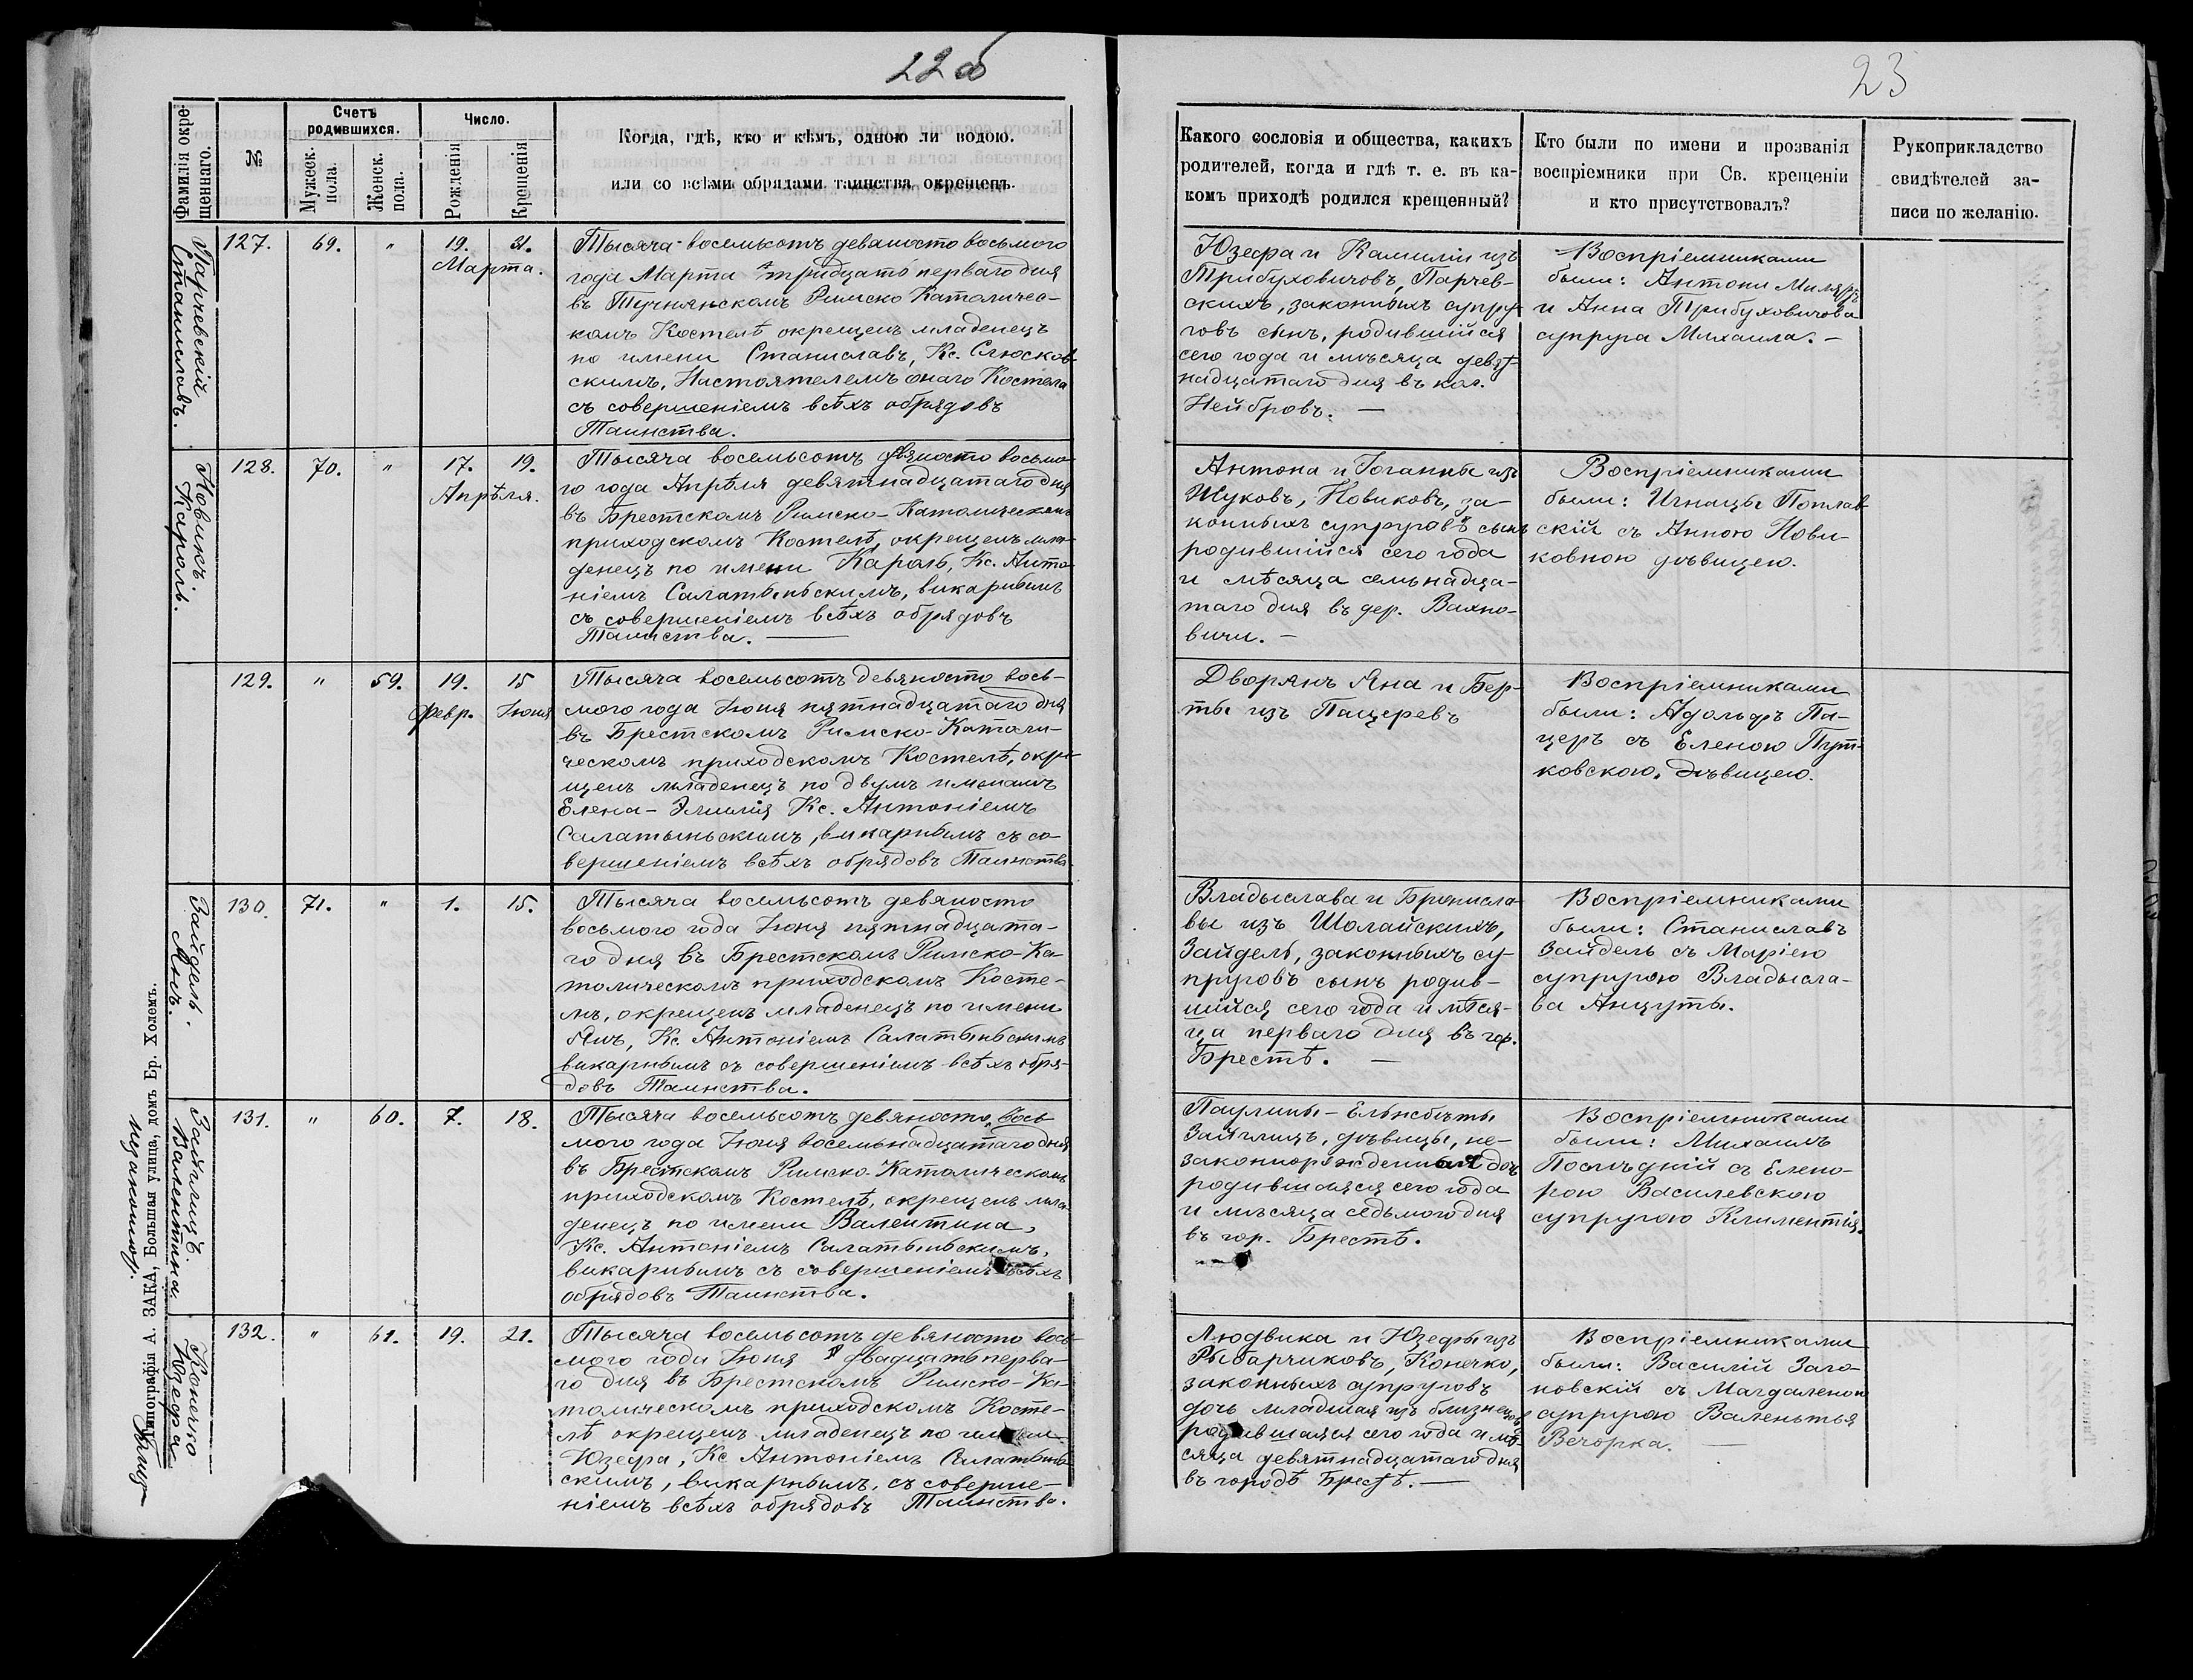 22 об
23
Фамилія окре-
щеннаго.
№
Счетъ
родившихся.
Мужеск.
пола.
Женск.
пола.
Число.
Рожденія
Крещенія
Когда, гдѣ, кто и кѣмъ, одною ли водою.
или со всѣми обрядами таинства окрещенъ.
Какого сословія и общества, какихъ
родителей, когда и гдѣ т. е. въ ка-
комъ приходѣ родился крещенный?
Кто были по имени и прозванія
воспріемники при Св. крещеніи
и кто присутствовалъ?
Рукоприкладство
свидѣтелей за-
писи по желанію.
Парчевскій
Станиславъ.
127.
69.
"
19.
31.
Марта.
Тысяча восемьсотъ девяносто восьмого
года Марта тридцать перваго дня
въ Тучнянскомъ Римско Католичес-
комъ Костелѣ окрещенъ младенецъ
по имени Станиславъ, Кс. Слюсков-
скимъ, Настоятелемъ онаго Костела
съ совершеніемъ всѣхъ обрядовъ
Таинства.
Юзефа и Камиліи изъ
Трибуховичовъ, Парчев-
скихъ, законныхъ супру-
говъ сынъ, родившійся
сего года и мѣсяца девят-
надцатаго дня въ кол.
Нейбровъ. —
Воспріемниками
были: Антони Миляръ
и Анна Трибуховичова
супруга Михаила. —
Новикъ.
Кароль.
128.
70.
"
17.
19.
Апрѣля.
Тысяча восемьсотъ девяносто восьмо-
го года Апрѣля девятнадцатаго дня
въ Брестскомъ Римско-Католическомъ
приходскомъ Костелѣ, окрещенъ мла-
денецъ по имени Кароль, Кс. Анто-
ніемъ Салатыньскимъ, викарнымъ
съ совершеніемъ всѣхъ обрядовъ
Таинства. —
Антона и Іоганны изъ
Жуковъ, Новиковъ, за-
конныхъ супруговъ сынъ
родившійся сего года
и мѣсяца семьнадца-
таго дня въ дер. Вахно-
вичи. —
Воспріемниками
были: Игнацы Поплав-
скій съ Анною Нови-
ковною дѣвицею.
129.
"
59.
19.
15
Февр.
Іюня
Тысяча восемьсотъ девяносто вось-
мого года Іюня пятнадцатаго дня
въ Брестскомъ Римско-Католи-
ческомъ приходскомъ Костелѣ, окре-
щенъ младенецъ по двумъ именамъ
Елена-Эмилія Кс. Антоніемъ
Салатыньскимъ, викарнымъ съ со-
вершеніемъ всѣхъ обрядовъ Таинства.
Дворянъ Яна и Бер-
ты изъ Пацеревъ
Воспріемниками
были: Адольфъ Па-
церъ съ Еленою Пут-
ковскою, дѣвицею.
Зайдель.
Янъ.
130.
71.
"
1.
15.
Тысяча восемьсотъ девяносто
восьмого года Іюня пятнадцата-
го дня въ Брестскомъ Римско-Ка-
толическомъ приходскомъ Косте-
лѣ, окрещенъ младенецъ по имени
Янъ, Кс. Антоніемъ Салатыньскимъ
викарнымъ съ совершеніемъ всѣхъ обря-
довъ Таинства.
Владыслава и Брониса-
вы изъ Шолайскихъ,
Зайдель, законныхъ су-
пруговъ сынъ родив-
шійся сего года и мѣся-
ца перваго дня въ гор.
Брестѣ. —
Воспріемниками
были: Станиславъ
Зайдель съ Маріею
супругою Владысла-
ва Анцуты.
Валентина.
131.
"
60.
7.
18.
Тысяча восемьсотъ девяносто вось
мого года Іюня восемьнадцатаго дня
въ Брестскомъ Римско-Католическомъ
приходскомъ Костелѣ, окрещенъ мла-
денецъ по имени Валентина,
Кс. Антоніемъ Салатыньскимъ,
викарнымъ съ совершеніемъ всѣхъ
обрядовъ Таинства.
Паулины-Ельжбѣты
дѣвицы, не-
законнорожденная дочь
родившаяся сего года
и мѣсяца седьмого дня
въ гор. Брестѣ.
Воспріемниками
были: Михаилъ
Послѣдній съ Елено-
рою Василевскою
супругою Климентія.
Конечко
Юзефа
132.
"
61.
19.
21.
Тысяча восемьсотъ девяносто вось-
мого года Іюня двадцать перва-
го дня въ Брестскомъ Римско-Ка-
толическомъ приходскомъ Косте-
лѣ окрещенъ младенецъ по имени
Юзефа, Кс Антоніемъ Салатынь-
скимъ, викарнымъ, съ соверше-
ніемъ всѣхъ обрядовъ Таинства.
Людвика и Юзефы изъ
Рыбарчиковъ, Конечко,
законныхъ супруговъ
дочь младшая изъ близнецовъ
родившаяся сего года и мѣ-
сяца девятнадцатаго дня
въ городѣ Брестѣ. —
Воспріемниками
были: Василій Заго-
новскій съ Магдаленою
супругою Валентья
Вечорка. —
Типографія А. ЗАКА, Большая улица, домъ Бр. Холемъ.